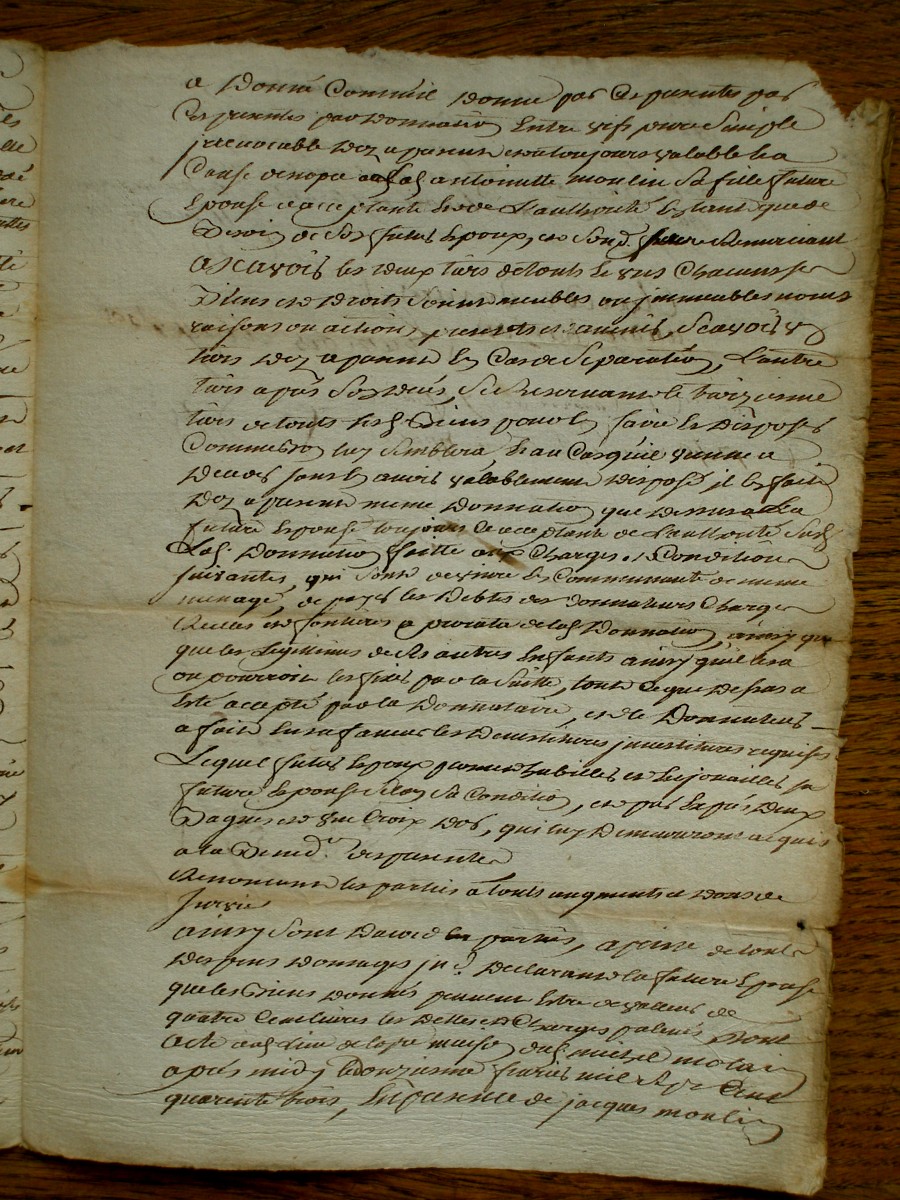 a Donné Comme il Donne par Ce presentes par
Ces presentes par Donnation Entre vifs pure Simple
jrrevocable Dez a present et a toujours valable a la
Cause de nopce a lad. antoinette moulin Sa fille future
Epouse acceptante de l'authorité
de Son futur Epoux, et Sond. pere Remerciant
ascavoir les deux tiers de touts Et uns Chacuns Ses
Biens et Droits Soint meubles ou jmmeubles noms
raisons ou actions, presents et avenir, Scavoir un
tiers Dez a present En Cas de Separation, L'autre
tiers apres Son deces, Se Reservant le troizieme
tiers de touts Sesd. Biens pour En faire Et Disposer
Comme bon luy Semblera, Et au Cas qu'il vienne a
Deceder sans En avoir valablement Disposé, jl En fait
Dez a present meme Donnation que Dessus a La
future Epouse toujours acceptante de L'authorité Susd.
Lad. Donnation faitte aux Charges et Conditions
suivantes, qui Sont de vivre En Communauté de meme
menage, de payer les Debtes du Donnateur Charges
Reelles et fonsieres a prorata de lad. Donnation, ainsy que
que les Legitimes de Ses autres Enfants ainsy qu'il les a
ou pourroit les fixer par la Suitte, tout Ce que Dessus a
Esté accepté par la Donnataire, et le Donnateur
a fait En sa faveur les Devestitures jnvestitures requises
Lequel futur Epoux promet habiller et Enjoailler sa
future Epouse Selon Sa Condition, et par Expres Deux
Bagues et une Croix D'or, qui luy Demeureront acquis
a la Bened.on des presentes
Renonceant les parties a touts augments et Dons de
Survie
ainsy Sont D'acord les parties, a peine de touts
Despens Domages jn. Declarant la future Epouse
que les Biens Donnés peuvent Estre de valleur de
quatre Cent livres les Dettes et Charges payées, Dont
acte aud. lieu de la maison dud. michel
apres midy le Douzieme fevrier mil Sept Cent
quarente trois, En presence de jacques moulin